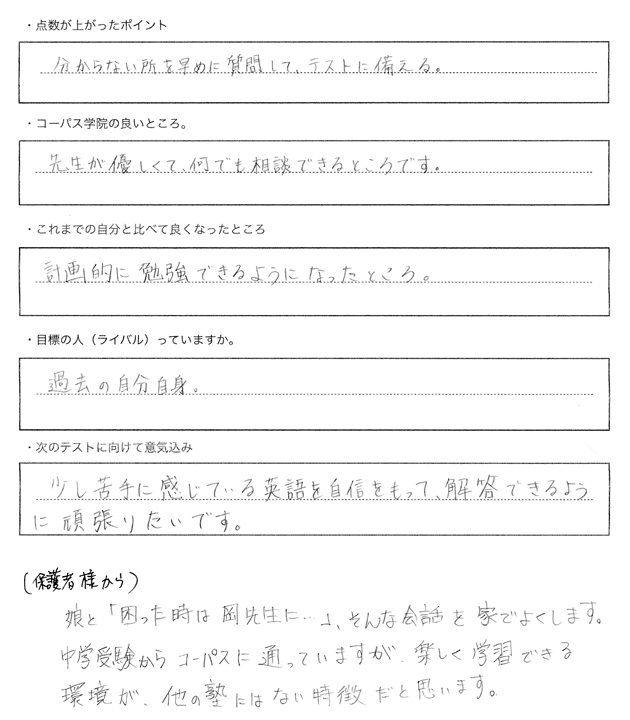 ・点数が上がったポイント
分からない所を早めに質問して、テストに備える。
・コーパス学院の良いところ。
先生が優しくて、何でも相談できるところです。
・これまでの自分と比べて良くなったところ
計画的に勉強できるようになったところ。
・目標の人（ライバル）っていますか。
過去の自分自身。
・次のテストに向けて意気込み
少し苦手に感じている英語を自信をもって、解答できるよう
に頑張りたいです。
(保護者様から)
娘と「困った時は岡先生に…」、そんな会話を家でよくします。
中学受験からコーパスに通っていますが、楽しく学習できる
環境が、他の塾にはない特徴だと思います。